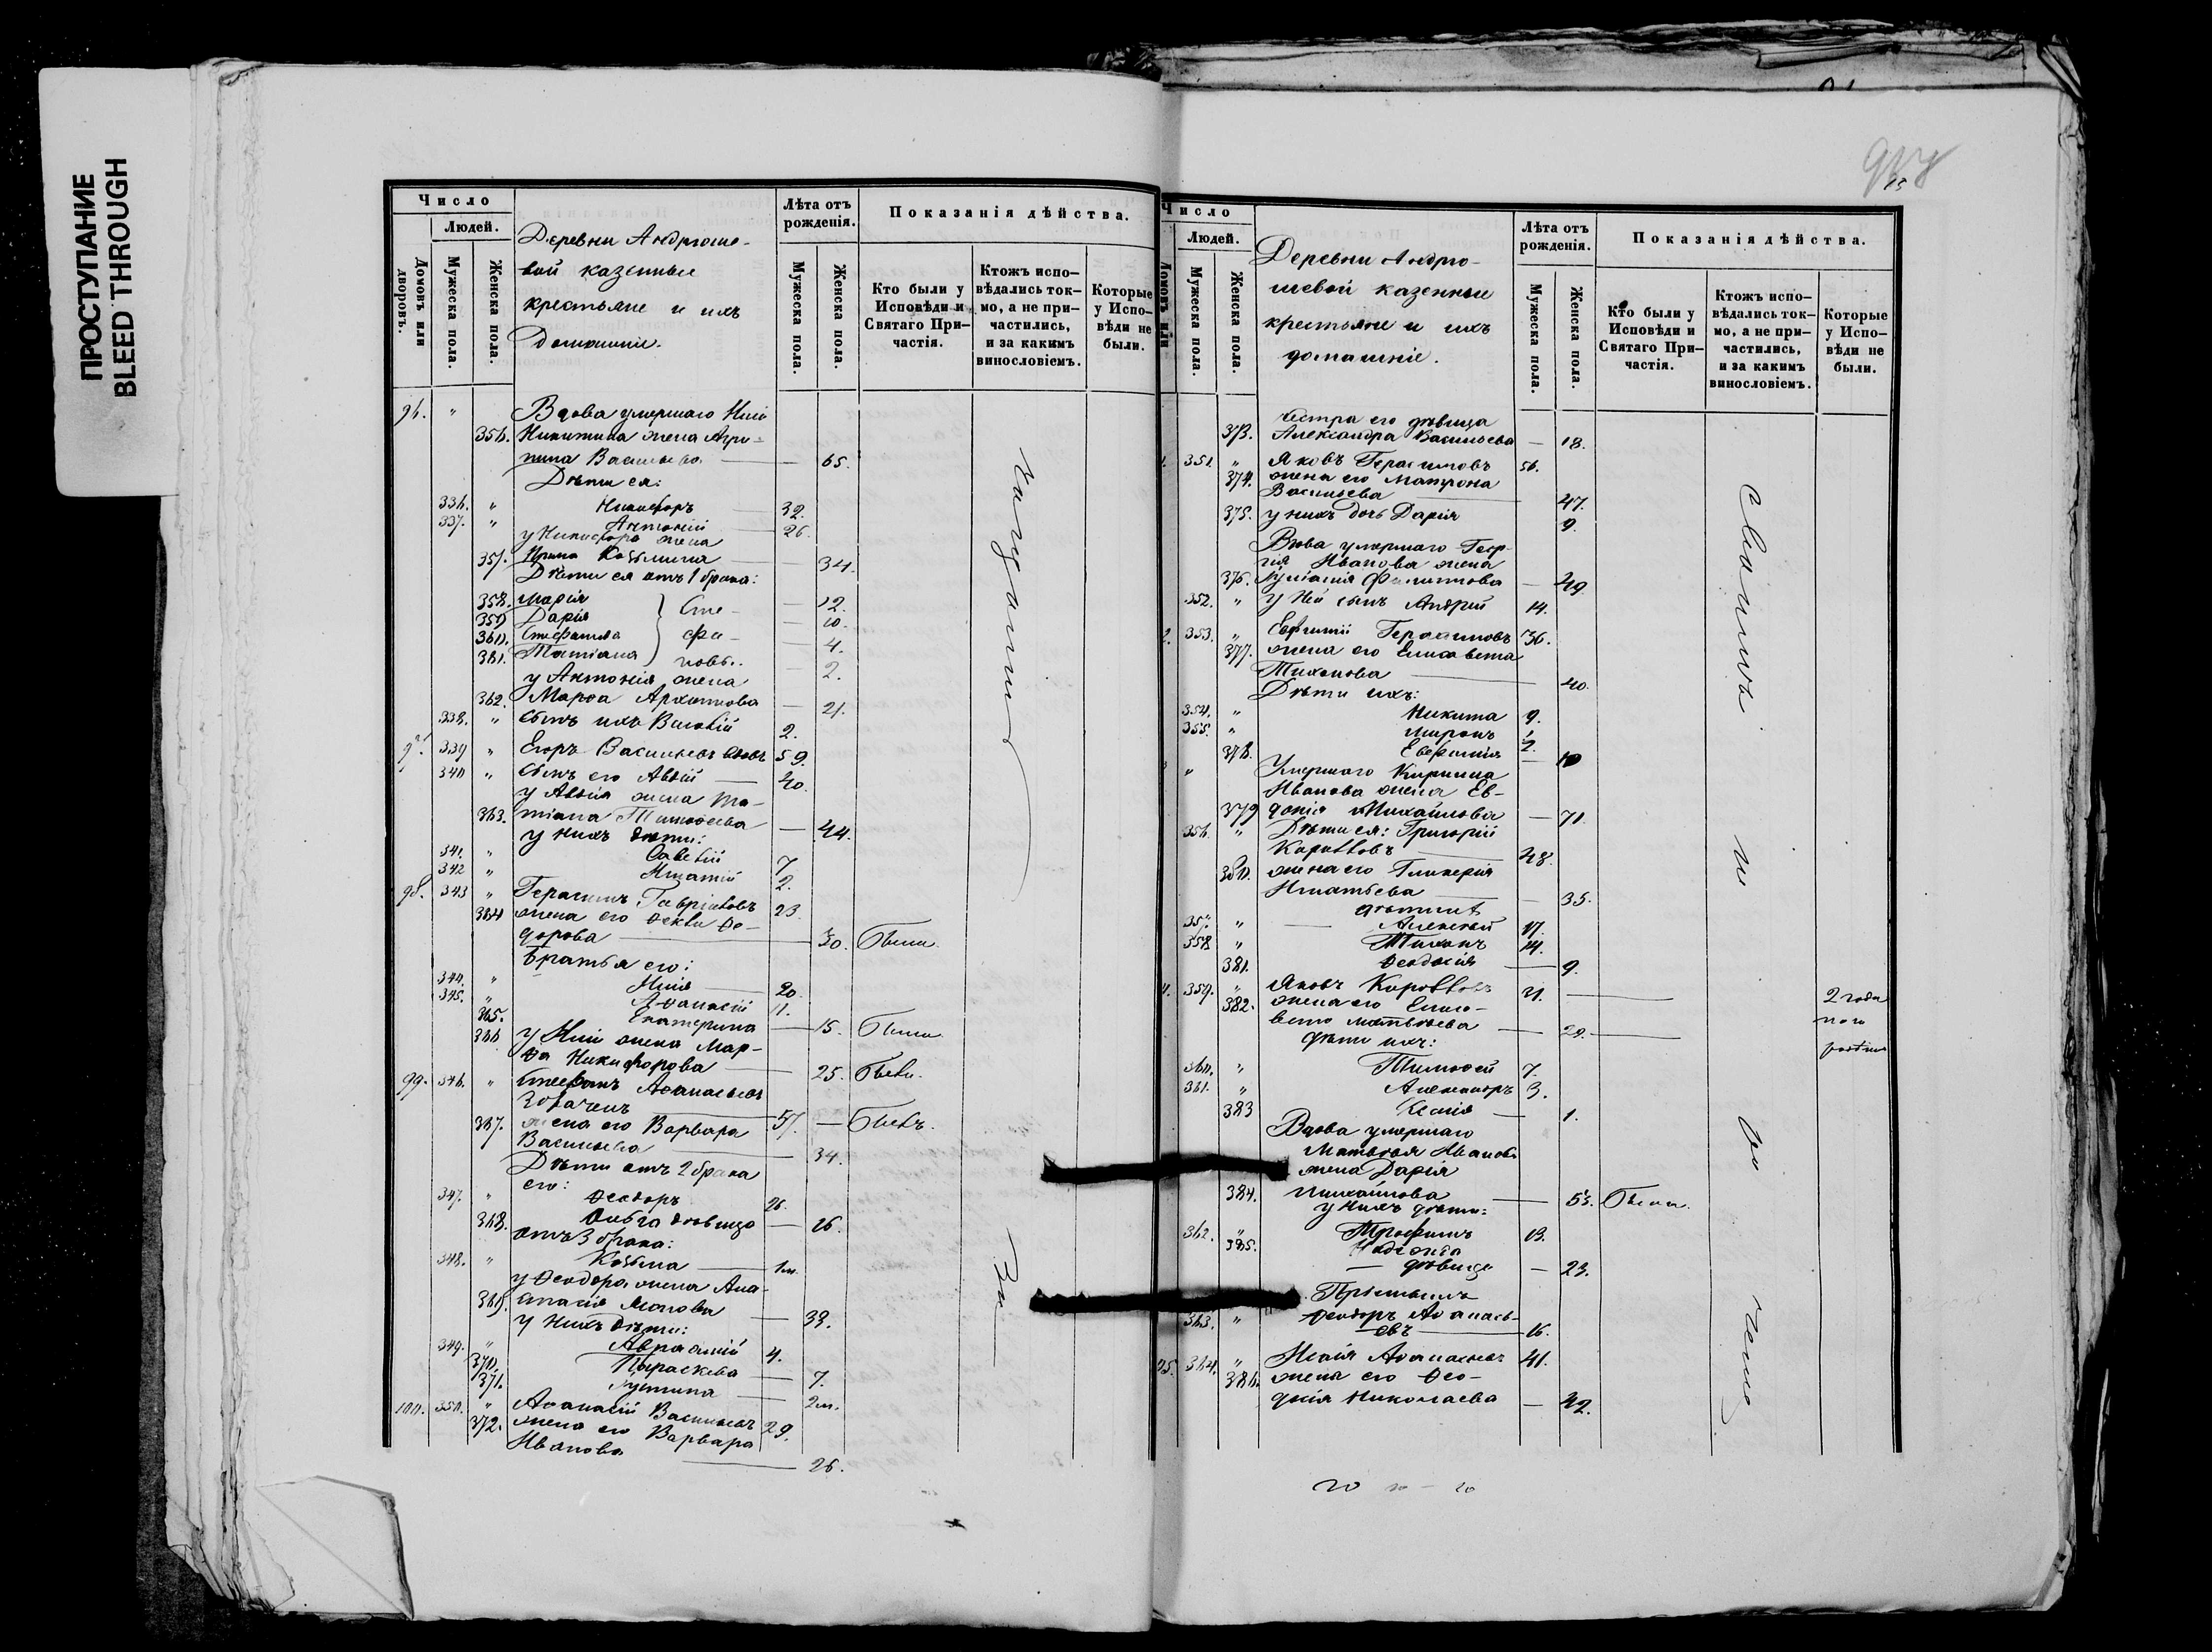 ПРОСТУПАНИЕ
BLEED THROUGH
Число
Людей.
Домовъ или дворовъ.
Мужеска пола.
Женска пола.
Деревни Андрюше-
вой казенные
крестьяне и ихъ
Домашніе.
Лѣта отъ рожденія.
Мужеска пола.
Женска пола.
Показанія дѣйства.
Кто были у Исповѣди и Святаго При-частія.
Ктожъ испо-вѣдались ток-мо, а не при-частились, и за какимъ винословіемъ.
Которые у Испо-вѣди не были.
96. " Вдова умершаго
356. Никитина жена Агри-
пина Васильева — 65.
Дѣти ея:
336. " Никифоръ 32.
337. " Антоній 26.
у Никифора жена
357. Ирина Козьмина 34.
Дѣти ея отъ 1 брака:
358. Марія — 12.
359 Дарія — 10.
360. Стефанида — 4.
361. Татіана — 2.
Сте-
фа-
новы.
у Антонія жена
362. Марѳа Архипова — 21.
338. " сынъ ихъ Василій 2.
97. 339 " Егоръ Васильевъ вдовъ 59.
340 " сынъ его Авдій 40.
у Авдія жена Та-
363. тіана Тимоѳеева — 44.
у нихъ дѣти:
341. " Савелій 7
342 " Игнатій 2.
98. 343 " Герасимъ Гавриловъ 23.
364 жена его Ѳекла Ѳе-
дорова — 30. Были.
Братья его:
344. " Илія 20.
345. " Аѳанасій 11.
365. Екатерина — 15. Были.
366 у Иліи жена Мар-
ѳа Никифорова 25. Были.
99. 346. " Стефанъ Аѳанасьевъ
57. — Былъ.
367. жена его Варвара
Васильева 34.
Дѣти отъ 2 брака
его:
347. " Ѳеодоръ 26.
368. Ольга дѣвица — 16.
отъ 3 брака:
348. " Козьма 1м.
у Ѳеодора жена Ана-
369. стасія — 33.
у нихъ дѣти:
349. " Авраамій 4.
370. Параскева — 7.
371. Іустина — 2м.
100. 350. " Аѳанасій Васильевъ 29.
372. жена его Варвара
Иванова — 26.
За
Число
Людей.
Домовъ или
Мужеска пола.
Женска пола.
Деревни Андрю-
шевой казенные
крестьяне и ихъ
домашніе.
Лѣта отъ рожденія.
Мужеска пола.
Женска пола.
Показанія дѣйства.
Кто были у Исповѣди и Святаго При-частія.
Ктожъ испо-вѣдались ток-мо, а не при-частились, и за какимъ винословіемъ.
Которые у Испо-вѣди не были.
сестра его дѣвица
373. Александра Васильева — 18.
1. 351. " Яковъ Герасимовъ 56.
374. жена его Матрона
Васильева 47.
375. у нихъ дочь Дарія 9.
Вдова умершаго Геор-
гія Иванова жена
376. Филиппова — 49.
352. " у ней сынъ Андрей 14.
2. 353. " Евфимій Герасимовъ 36.
377. жена его Елисавета
Тихонова 40.
Дѣти ихъ:
354. " Никита 9.
355. " Миронъ
378. — 10
" Умершаго Кирилла
Иванова жена Ев-
379 докія Михайлова — 71.
356. " Дѣти ея: Григорій
Кирилловъ 48.
380. жена его Гликерія
Игнатьева — 35.
дѣти ихъ
357. " Алексѣй 17.
358 " Тихонъ 14.
381. Ѳеодосія — 9.
4. 359. " Яковъ Кирилловъ 31. —
382. жена его Елиса-
вета Матвѣева — 29. —
2 года
дѣти ихъ:
360. " Тимоѳей 7.
361. " Александръ 3.
383 Ксенія — 1.
Вдова умершаго
Матвѣя Иванова
жена Дарія
384. Михайлова — 53. Были.
у нихъ дѣти:
362. " Трофимъ 13.
385. Надежда
— дѣвица — 23.
Пріемышъ
363. " Ѳеодоръ Аѳанась-
евъ 16.
5. 364. " Исаія Аѳанасьевъ 41.
386. жена его Ѳео-
Николаева — 42.